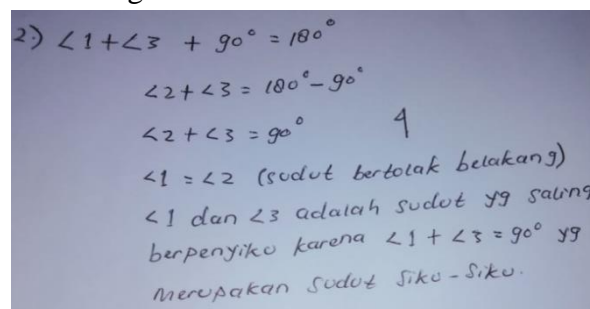 2.) ∠1 + ∠3 + 90° = 180°
∠2 + ∠3 = 180° - 90°
∠2 + ∠3 = 90° 4
∠1 = ∠2 (sudut bertolak belakang)
∠1 dan ∠3 adalah sudut yg saling
berpenyiku karena ∠1 + ∠3 = 90° yg
merupakan sudut siku-siku.